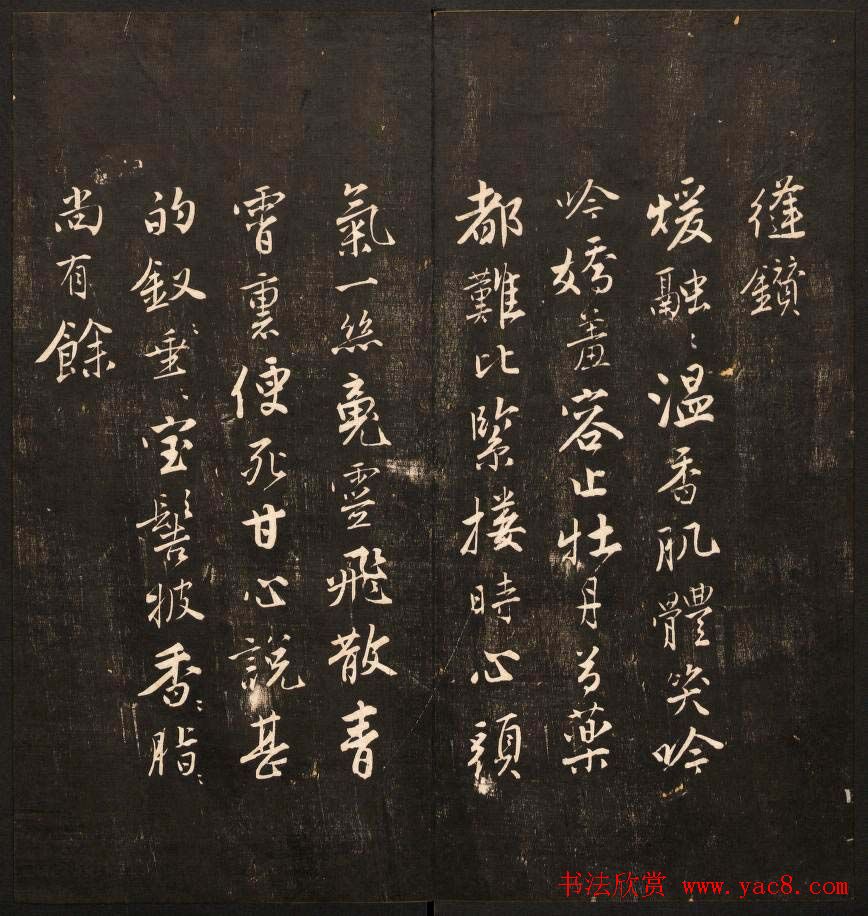 缝鑚
煖融〻温香肌體笑吟
吟嬌羞容止牡丹芍藥
都難比緊摟時心頭
氣一絲竟靈飛散青
霄裏便死甘心說甚
的釵〻垂〻宝髻披香〻脂〻
尚有餘
书法欣赏 www.yac8.com